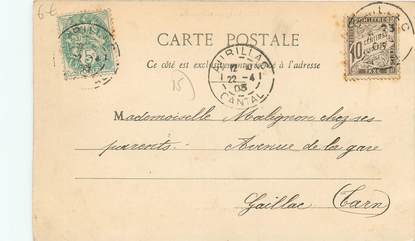 6-€
CARTE POSTALE
Ce côté est exclusivement réservé à l'adresse
AURILLAC
22-4
05
CANTAL
CHIFFRE
10 CENTIMES
A PERCEVOIR
TAXE
15
Mademoiselle Malignon chez ses
parents.- Avenue de la gare
Gaillac (Tarn)